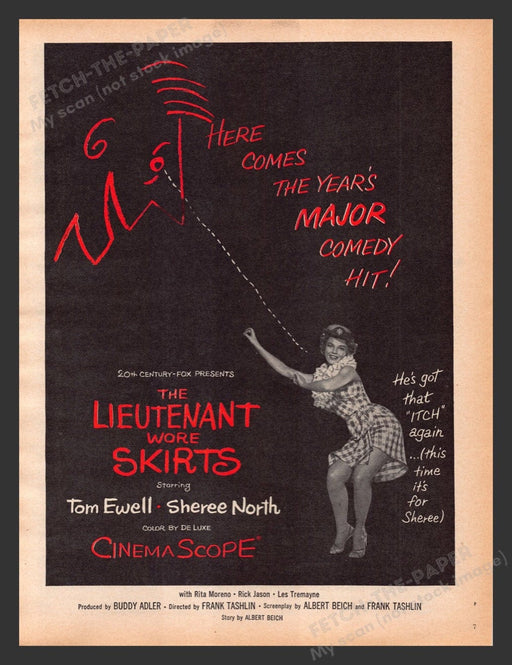 FETCH-THE-PAPER
My scan (not stock image)
HERE
COMES
THE YEAR'S
MAJOR
COMEDY
HIT!
20th CENTURY-FOX PRESENTS
THE
LIEUTENANT
WORE
SKIRTS
Starring
Tom Ewell · Sheree North
COLOR BY DE LUXE
CINEMASCOPE
He's got
that
"ITCH"
again
...(this
time
it's
for
Sheree)
with Rita Moreno • Rick Jason • Les Tremayne
Produced by BUDDY ADLER • Directed by FRANK TASHLIN • Screenplay by ALBERT BEICH and FRANK TASHLIN
Story by ALBERT BEICH
P
7
FETCH-THE-PAPER
My scan (not stock image)